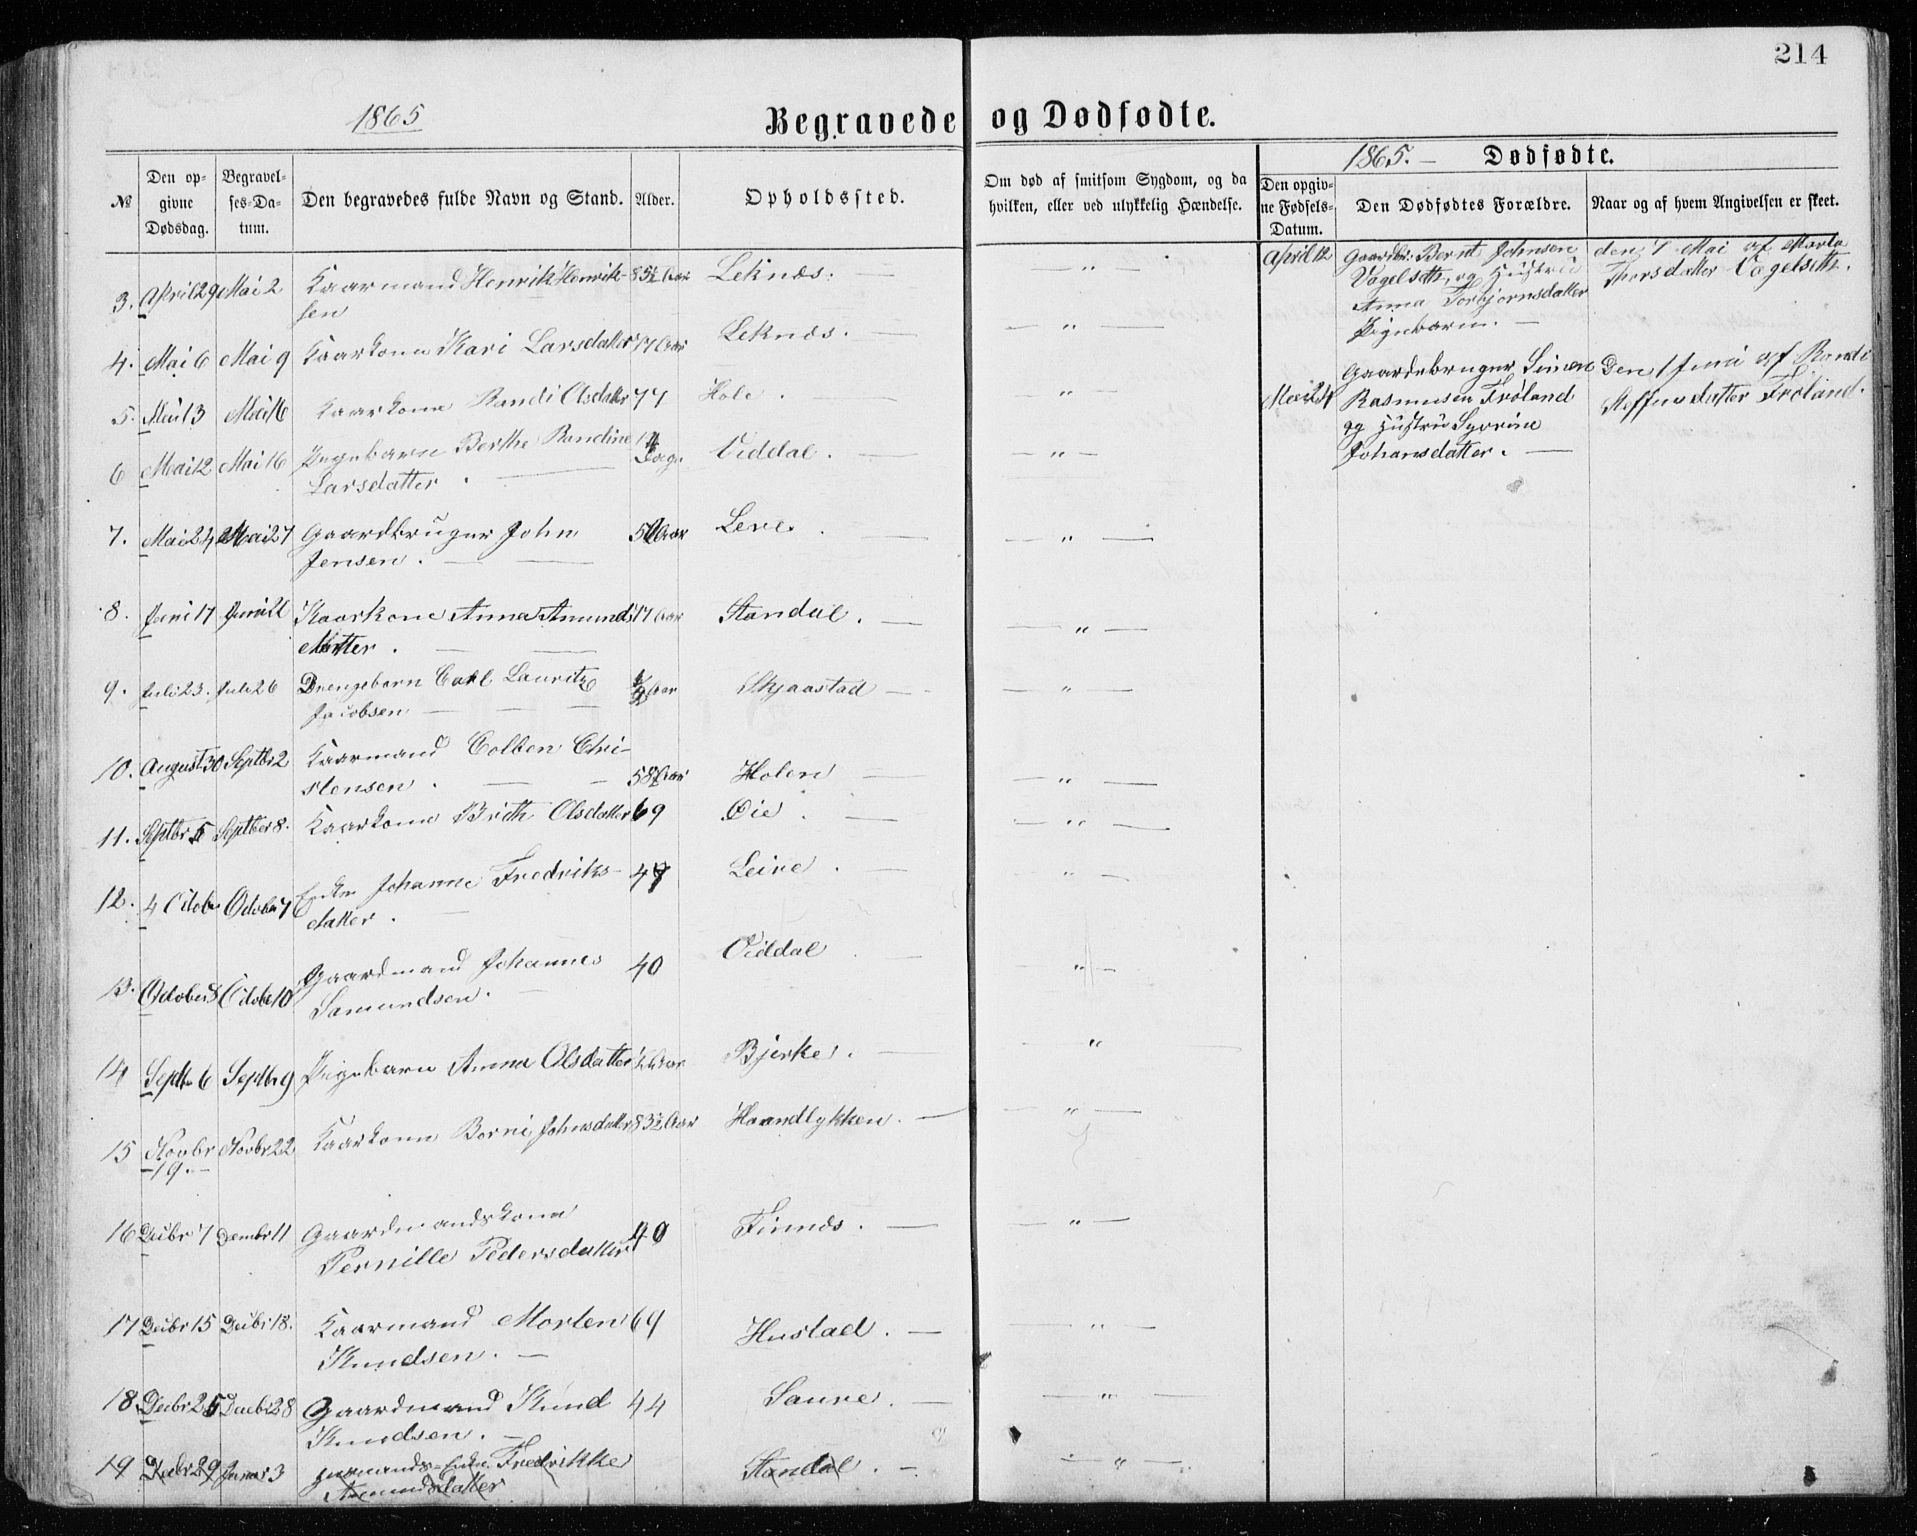 214
1865
Begravede og Dødfødte.
1865. — Dødfødte.
№ Den opgivne Dødsdag. Begravelses-Datum. Den begravedes fulde Navn og Stand. Alder. Opholdssted. Om død af smitsom Sygdom, og da hvilken, eller ved ulykkelig Hændelse. Den opgivne Fødsels-Datum. Den Dødfødtes Forældre. Naar og af hvem Angivelsen er skeet.
3. April 29 Mai 2 Kaarmand Henrik Henrik- 83½ Aar Leknes. — "
sen
4. Mai 6 Mai 9 Kaarkone Kari Larsdatter 77 Aar Leknes. — " —
5. Mai 13 Mai 16 Kaarkone Randi Olsdatter 77 Hole . — " —
6 Mai 12 Mai 16 Pigebarn Berthe Randine 14 Dage. Viddal . — " —
Larsdatter . —
7. Mai 24 Mai 27 Gaardbruger John Aar Leve. — " —
Jensen . —
8. Juni 17 Juni 21 Kaarkone Anna Amunds 77 Aar Standal . — " —
datter . —
9. Juli 23. Juli 26 Drengebarn Carl Lauritz Aar Skjaastad — " —
Jacobsen —
10. August 30 Septbr 2 Kaarmand Colben Chri-
stensen . — Aar Holen — " —
11. Septbr 5 Septber 8. Kaarkone Brith Olsdatter 69 Øie . — " —
12. 4 Octobr October 7 Enke Johanne Fredriks- 47 Leire . — " —
datter . —
13. October 8 Octobr 10 Gaardmand Johannes 40 Viddal — " —
Samundsen . —
14 Septbr 6 Septbr 9 Pigebarn Anna Olsdatter ½ Aar Bjerke . — " —
15 Novbr 19. — Novbr 22 Kaarkone Berni Johnsdatter 83½ Aar Haandlykken . — " —
16 Decbr 7 Decembr 11 Gaardmandskone
Pernille Pedersdatter 40 Finnes . — " —
17 Decbr 15 Decbr 18. Kaarmand Morten 69 Hustad . — " —
Knudsen . —
18. Decbr 25 Decbr 28 Gaardmand Knud 44 Saure . — " —
Knudsen . —
19 Decbr 29 Januar 3 Enke Fredrikke Standal . — " —
Amundsdatter
April 12 Gaardbr: Bernt Johnsen den 7 Mai af Marta
Vagelseth, og Hustru Thorsdatter Vagelseth.
Anna Torbjørnsdatter
Pigebarn. —
Mai 24 Gaardebruger Simen Den 1 Juni af Randi
Rasmusen Frøland Steffensdatter Frøland.
og Hustru Syvrine
Johansdatter . —